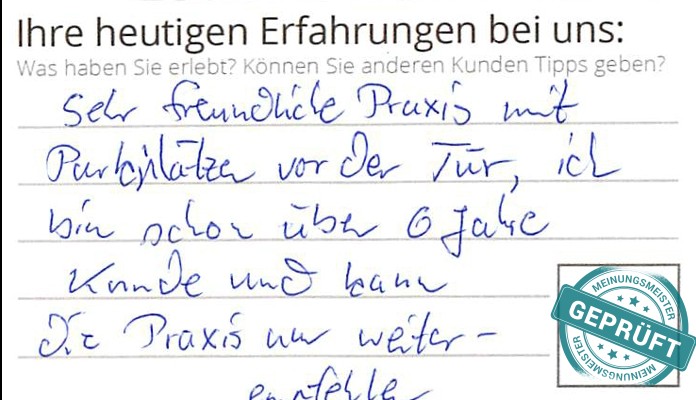 Ihre heutigen Erfahrungen bei uns:
Was haben Sie erlebt? Können Sie anderen Kunden Tipps geben?
Sehr freundliche Praxis mit
Parkplätzen vor der Tür, ich
bin schon über 6 Jahre
Kunde und kann
die Praxis nur weiter-
empfehlen
MEINUNGSMEISTER
GEPRÜFT
MEINUNGSMEISTER